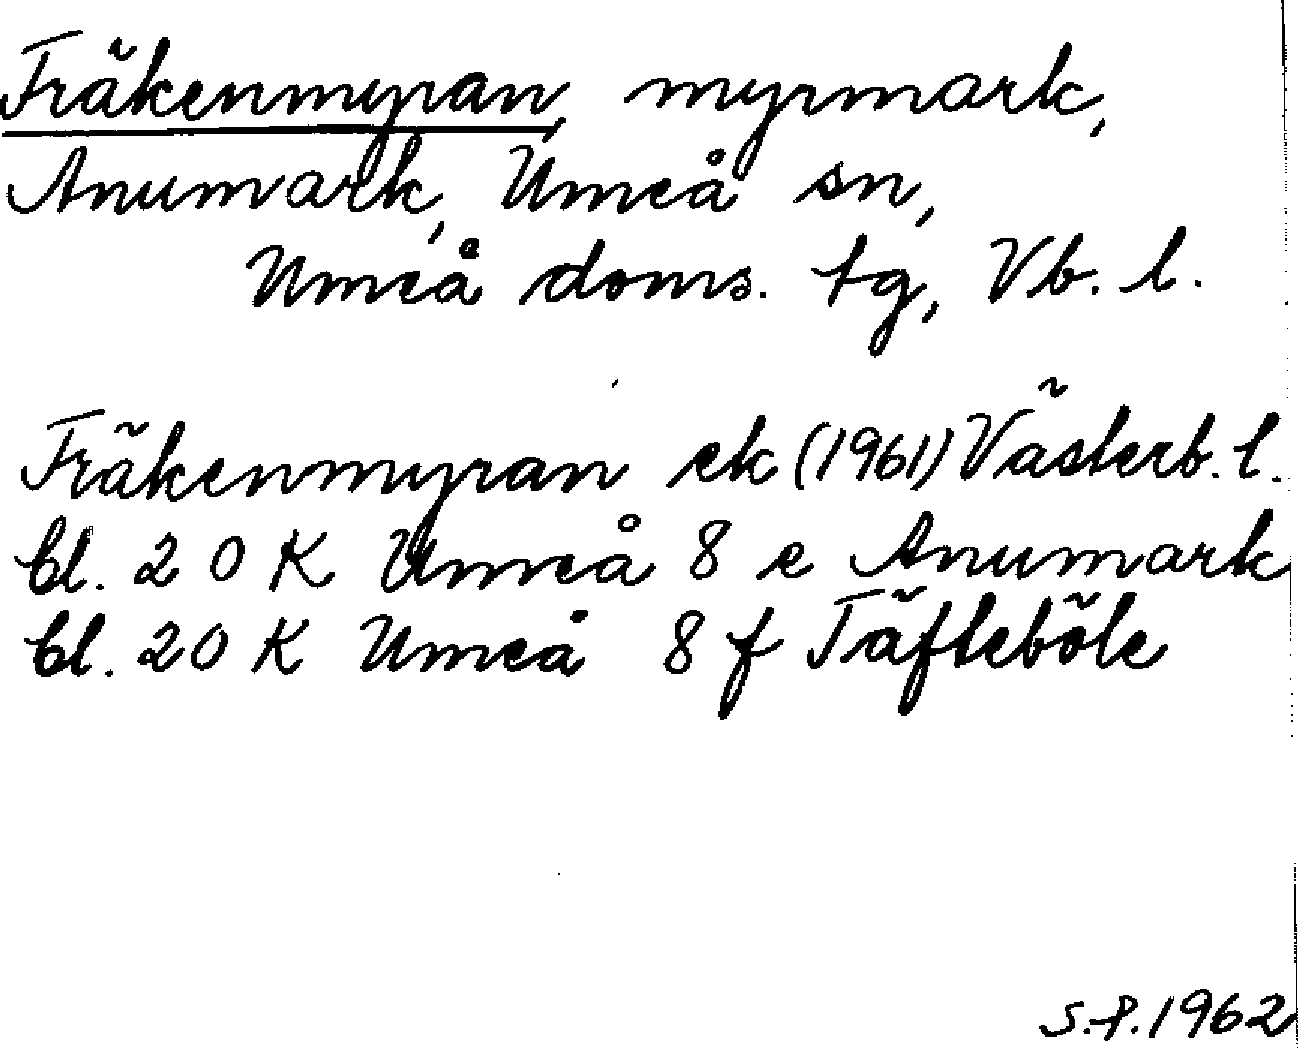 Fräkenmyran, myrmark,
Anumark, Umeå sn,
Umeå doms. tg, Vb. l.
Fräkenmyran ek (1961) Västerb. l.
bl. 20 K Umeå 8 e Anumark
bl. 20 K Umeå 8 f Täfteböle
S.P. 1962